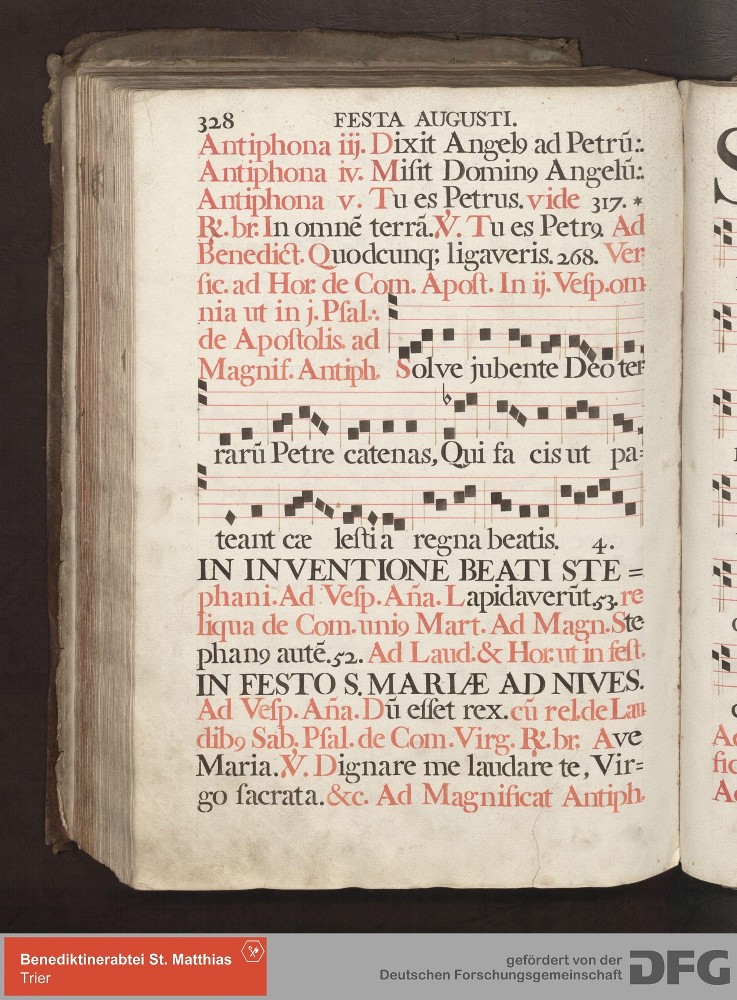 328 FESTA AUGUSTI.
Antiphona iij. Dixit Angelꝰ ad Petrū:.
Antiphona iv. Misit Dominꝰ Angelū:.
Antiphona v. Tu es Petrus. vide 317. *
℟. br. In omnē terrā. ℣. Tu es Petrꝰ. Ad
Benedict. Quodcunq; ligaveris. 268. Ver
sic. ad Hor. de Com. Apost. In ij. Vesp. om
nia ut in j. Psal:.
de Apostolis. ad
Magnif. Antiph. Solve jubente Deo ter
rarū Petre catenas, Qui fa cis ut pa=
teant cæ lesti a regna beatis. 4.
IN INVENTIONE BEATI STE =
phani. Ad Vesp. Aña. Lapidaverūt 53. re
liqua de Com. uniꝰ Mart. Ad Magn. Ste
phanꝰ autē. 52. Ad Laud:. & Hor. ut in fest.
IN FESTO S. MARIÆ AD NIVES.
Ad Vesp. Aña. Dū esset rex. cū rel. de Lau
dibꝰ Sab. Psal. de Com. Virg. ℟. br. Ave
Maria. ℣. Dignare me laudare te, Vir=
go sacrata. &c. Ad Magnificat Antiph.
Benediktinerabtei St. Matthias
Trier
gefördert von der
Deutschen Forschungsgemeinschaft
DFG